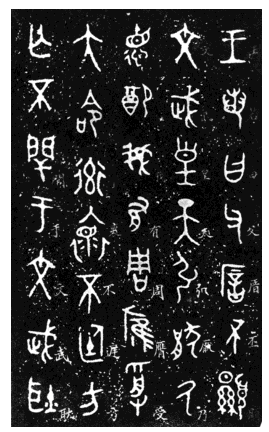 王若曰父厝不顯
文武皇天弘厭厥
德配我有周膺受
大命率懷不廷方
亡不閈于文武耿